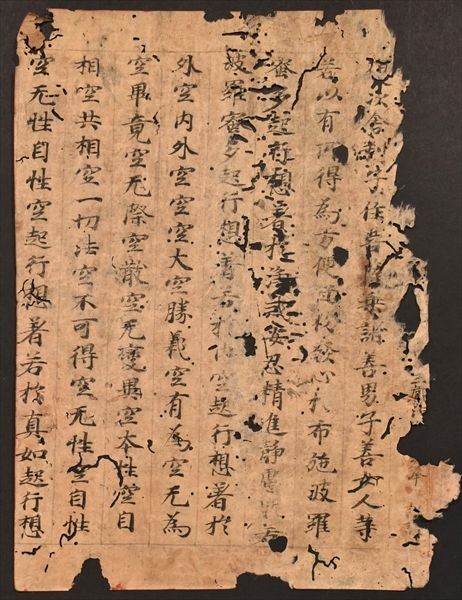 舍利子住菩薩乘諸善男子善女人等
若以有所得為方便發心於布施波羅
蜜多起行想著於淨戒安忍精進靜慮般若
波羅蜜多起行想著若於內空起行想著於
外空內外空空空大空勝義空有為空无為
空畢竟空无際空散空无變異空本性空自
相空共相空一切法空不可得空无性空自性
空无性自性空起行想著若於真如起行想